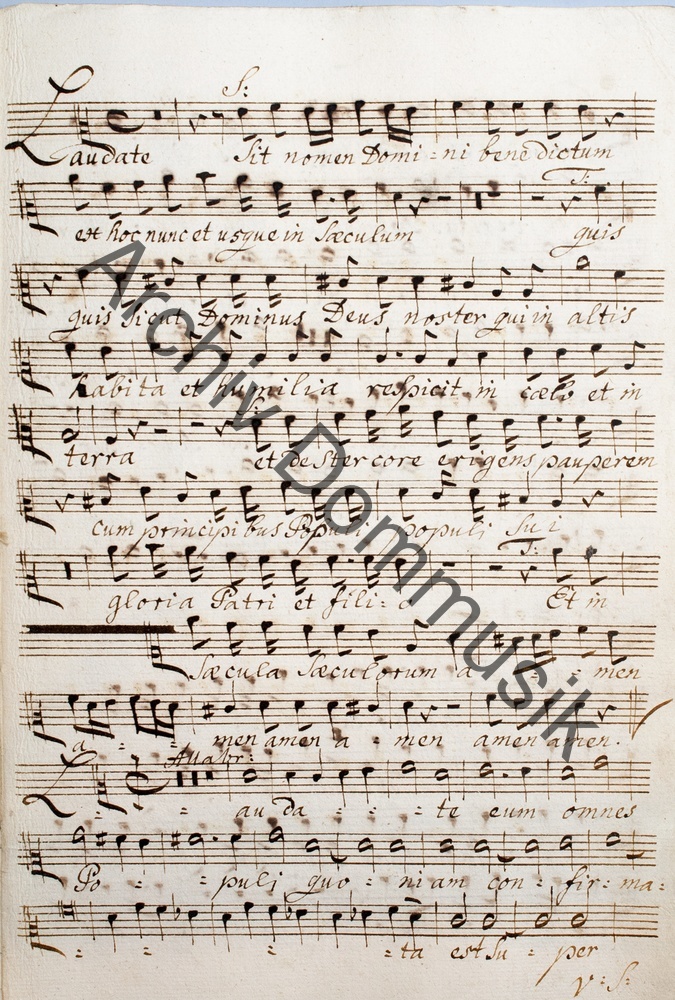 S:
Laudate Sit nomen Domi = ni benedictum
ex hoc nunc et usque in Sæculum T: quis
quis Sicut Dominus Deus noster qui in altis
habita et humilia respicit in cælo et in
terra et de Stercore erigens pauperem
cum principibus Populi populi Sui
T:
gloria Patri et fili = o Et in
Sæcula Sæculorum a = = men
a = = men amen a = men amen amen.
Laudate eum omnes
Po = = puli quo = niam con = fir = ma =
= = = = ta est Su = per
v = S:
Archiv Dommusik